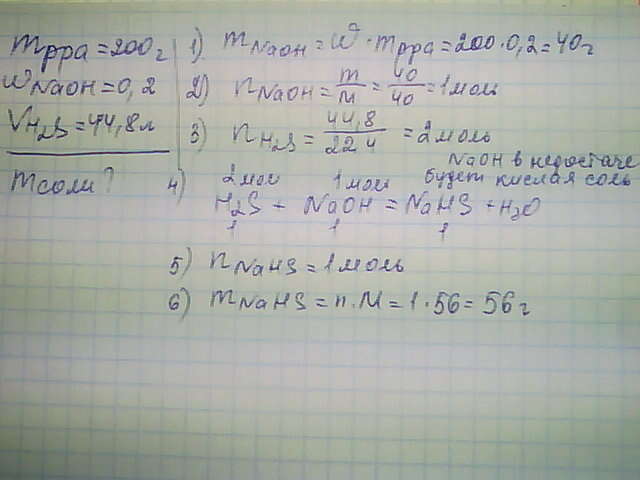 mрра = 200г
WNaOH = 0,2
VH₂S = 44,8л
mсоли?
1) mNaOH = W · mрра = 200 · 0,2 = 40г
2) nNaOH = m/M = 40/40 = 1 моль
3) nH₂S = 44,8/22 4 = 2 моль
NaOH в недостаче
будет кислая соль
4) 2 мол 1 мол
H₂S + NaOH = NaHS + H₂O
1 1 1
5) nNaHS = 1 моль
6) mNaHS = n · M = 1 · 56 = 56г